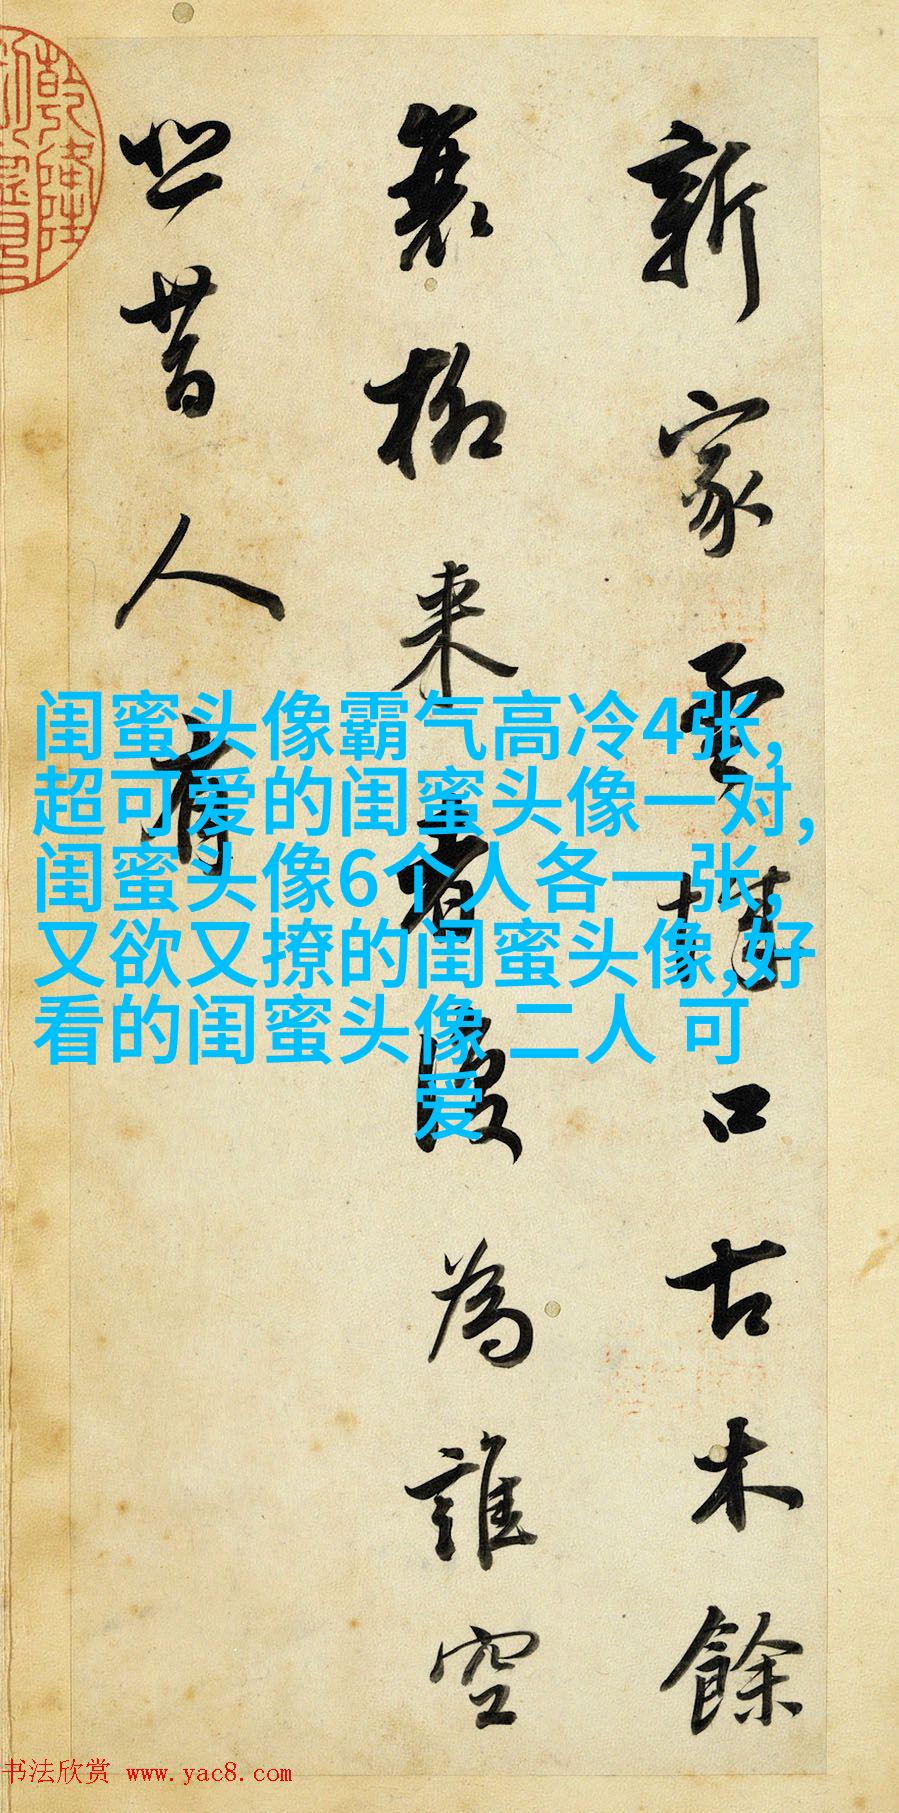 新家孟城口古木餘
衰柳來者復為誰空
悲昔人有
闺蜜头像霸气高冷4张,
超可爱的闺蜜头像一对,
闺蜜头像6个人各一张,
又欲又撩的闺蜜头像,好
看的闺蜜头像 二人 可
爱
书法欣赏 www.yac8.com